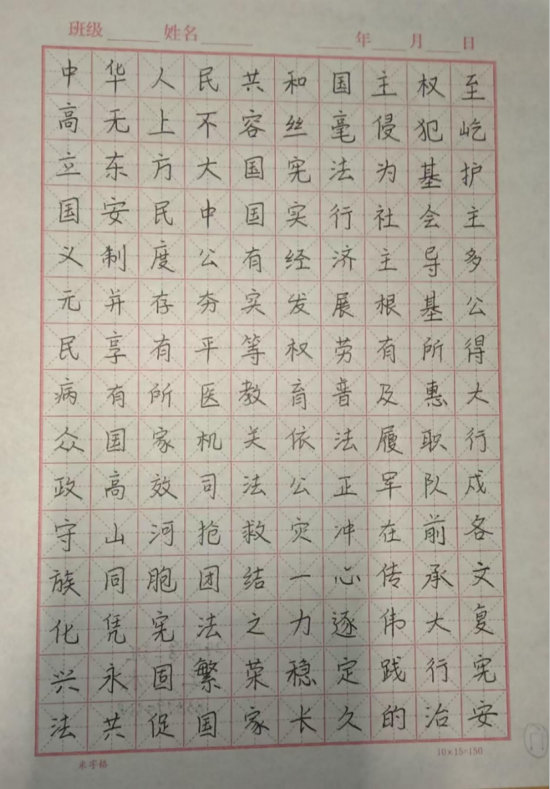 班级 姓名 年 月 日
中华人民共和国主权至
高无上不容丝毫侵犯屹
立东方大国宪法为基护
国安民中国实行社会主
义制度公有经济主导多
元并存夯实发展根基公
民享有平等权劳有所得
病有所医教育普及惠大
众国家机关依法履职行
政高效司法公正军队戍
守山河抢救灾冲在前各
族同胞团结一心传承文
化凭宪法之力逐伟大复
兴永固繁荣稳定践行宪
法共促国家长久的治安
米字格 10×15=150